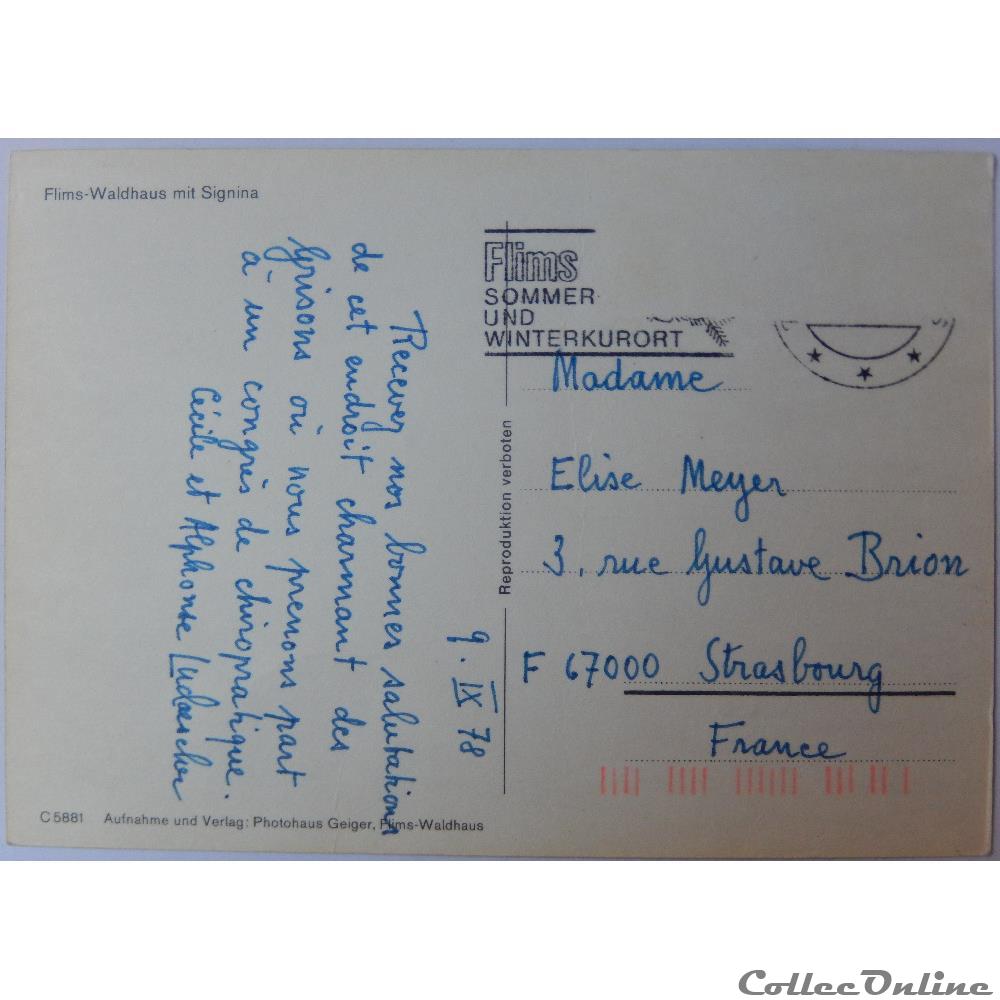 Flims-Waldhaus mit Signina
9. IX 78
Recevez nos bonnes salutations
de cet endroit charmant des
Grisons où nous prenons part
à un congrès de chiropratique.
Cécile et Alphonse
C 5881 Aufnahme und Verlag: Photohaus Geiger, Flims-Waldhaus
Reproduktion verboten
Flims
SOMMER
UND
WINTERKURORT
Madame
Elise Meyer
3, rue Gustave Brion
F 67000 Strasbourg
France
CollecOnline